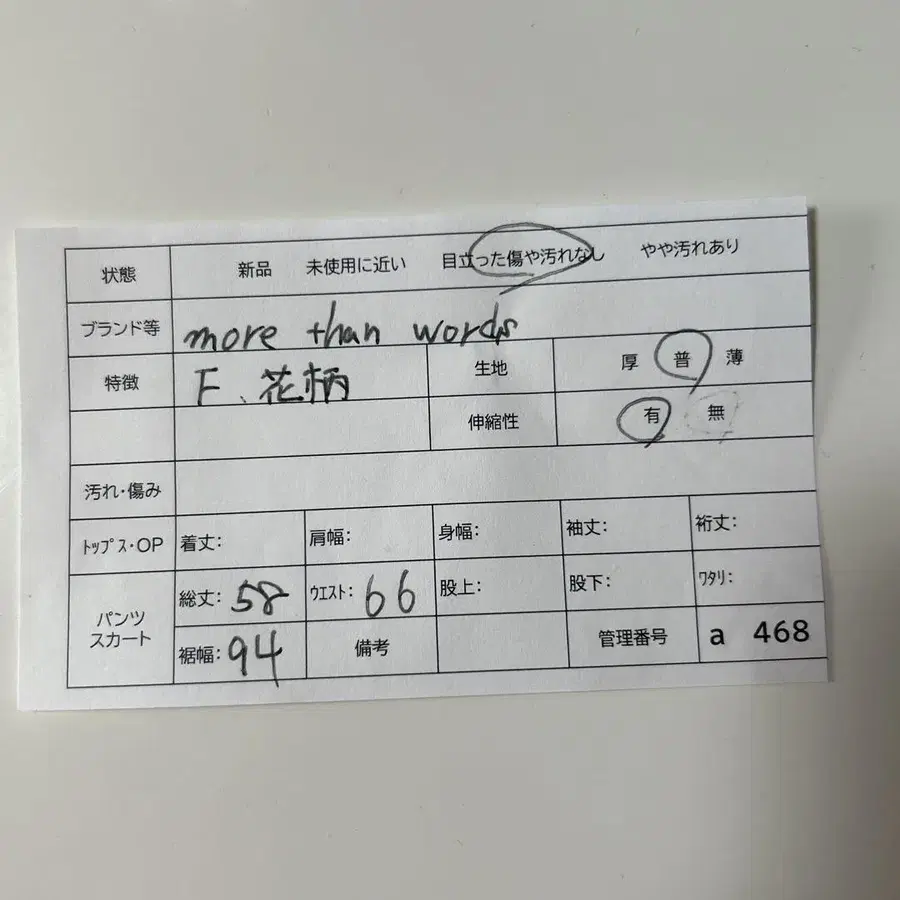 状態 新品 未使用に近い 目立った傷や汚れなし やや汚れあり
ブランド等 more than words
特徴 F、花柄 生地 厚 普 薄
伸縮性 有 無
汚れ・傷み
ﾄｯﾌﾟｽ・OP 着丈: 肩幅: 身幅: 袖丈: 裄丈:
パンツ スカート 総丈: 58 ｳｴｽﾄ: 66 股上: 股下: ﾜﾀﾘ:
裾幅: 94 備考 管理番号 a 468